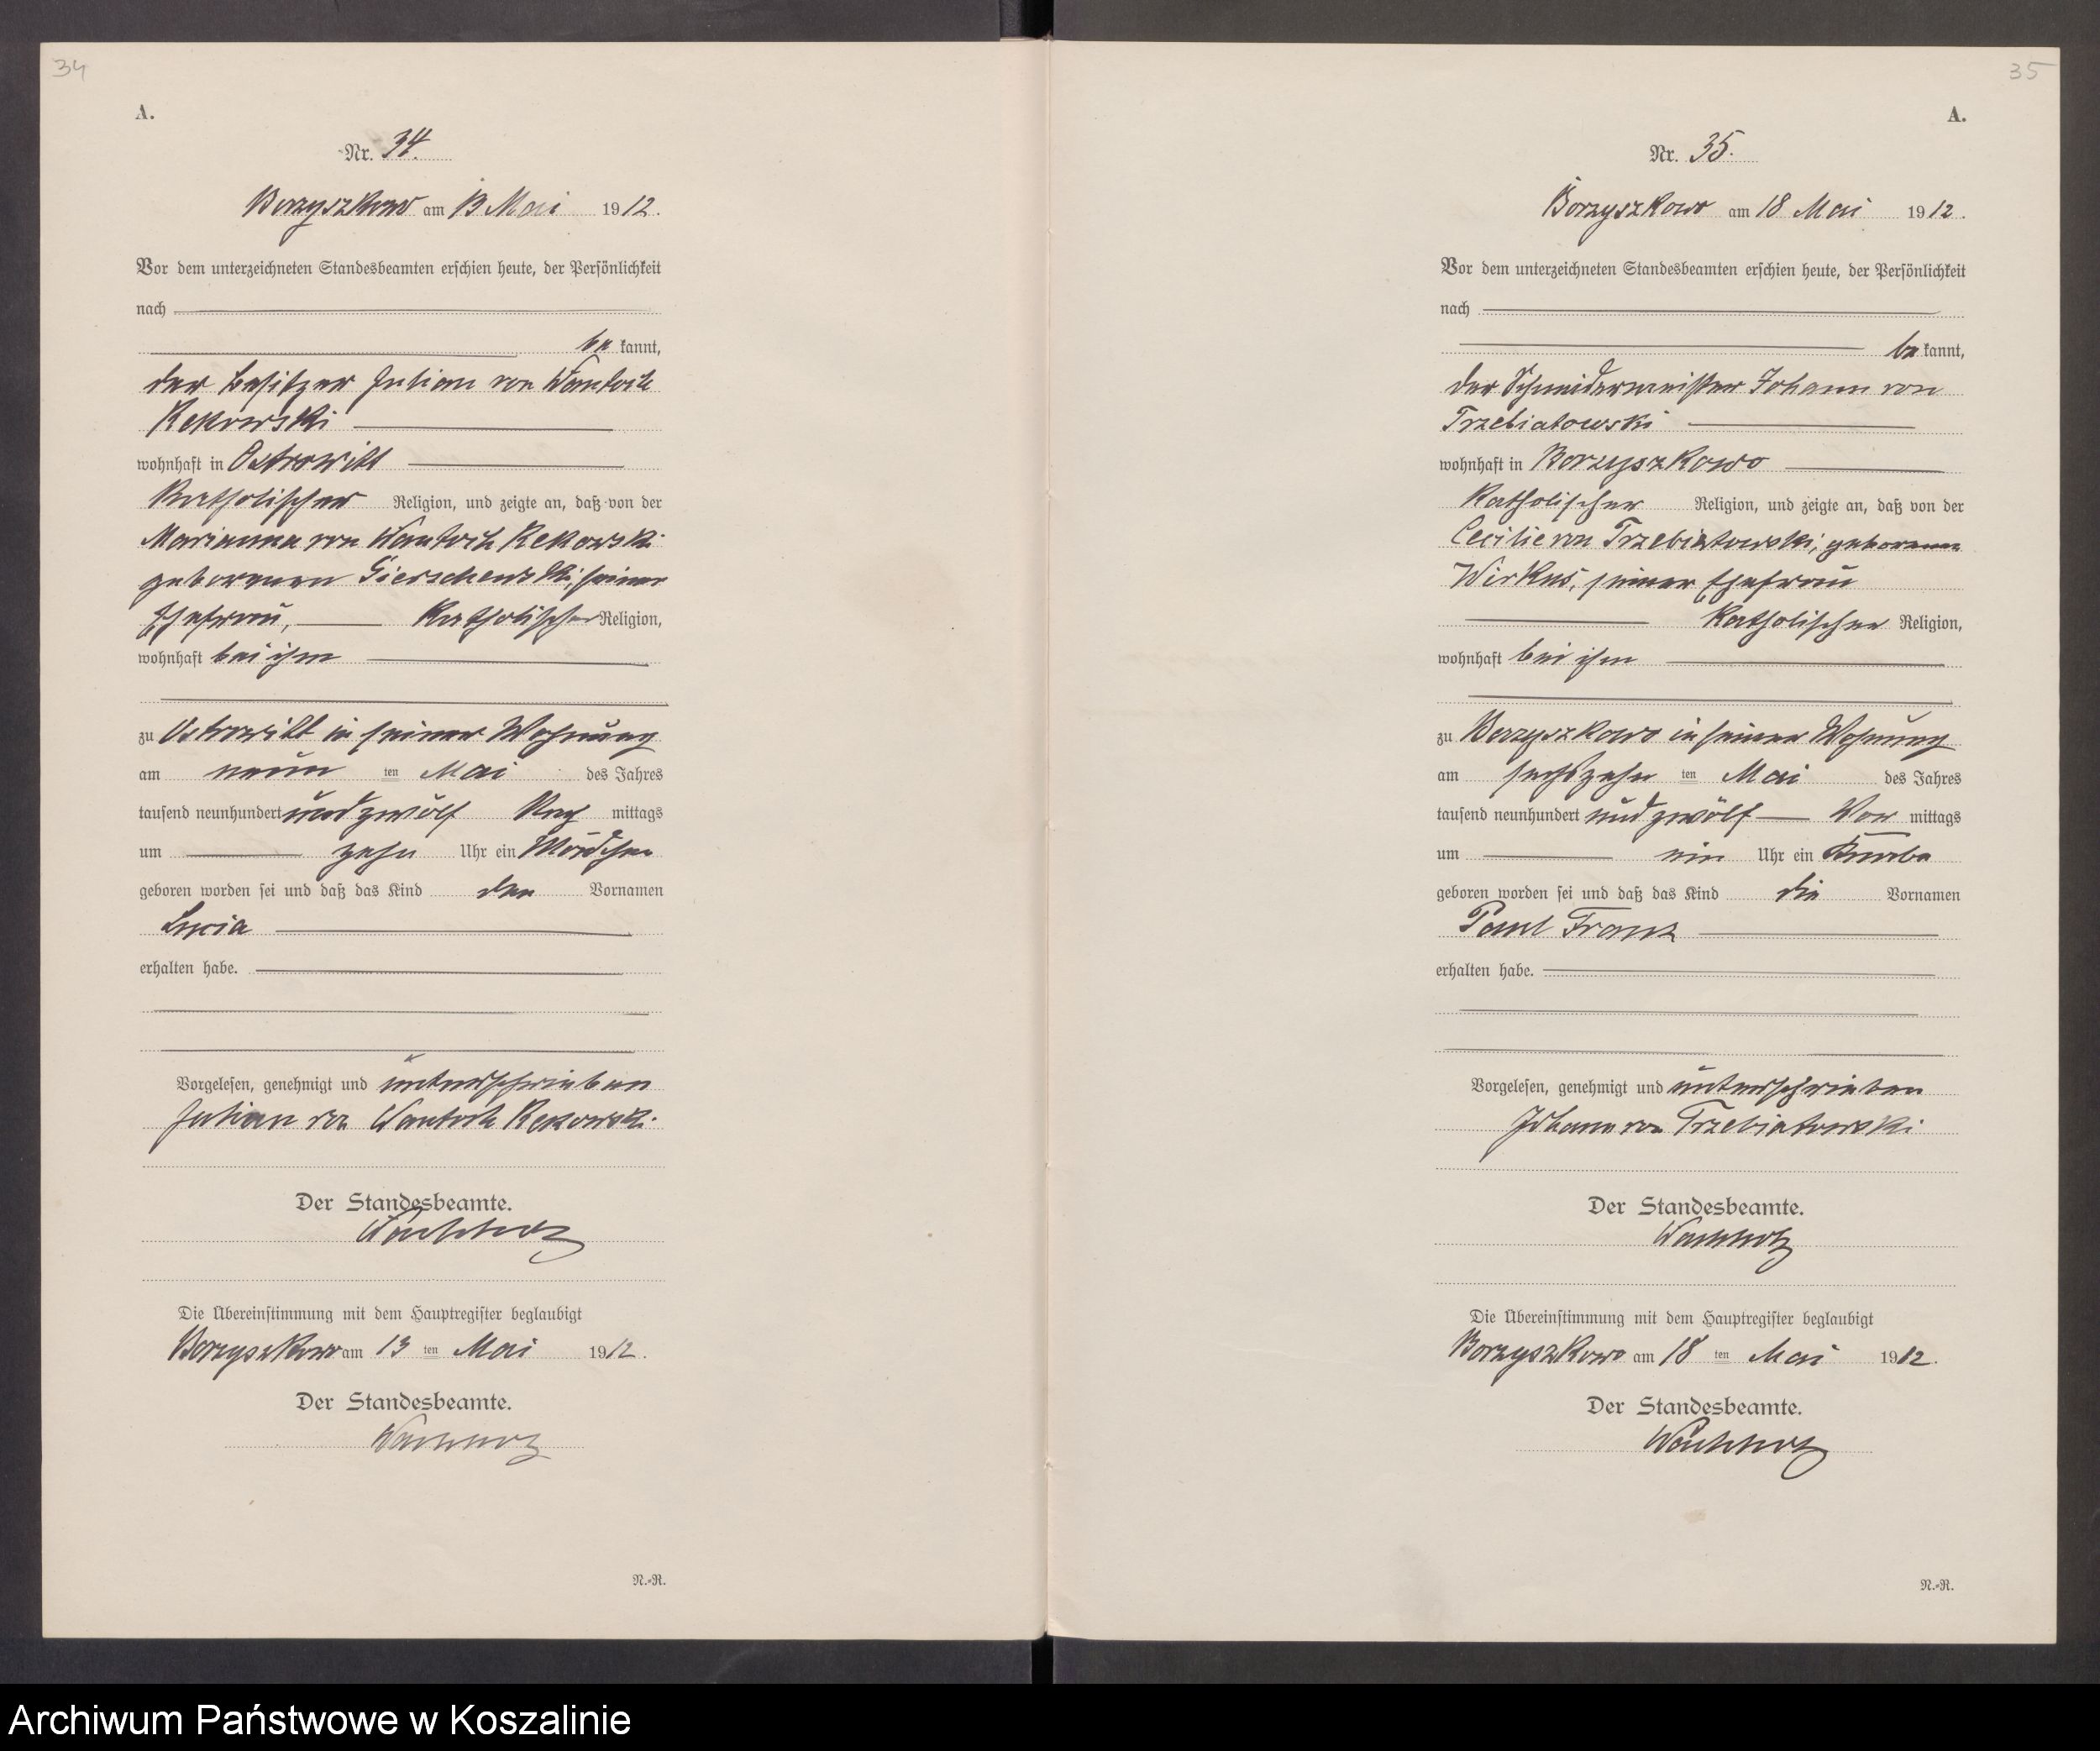 34
A.
Nr. 34.
Borzyszkowo am 13 Mai 1912.
Vor dem unterzeichneten Standesbeamten erschien heute, der Persönlichkeit
nach
be kannt,
der Besitzer Julian von Wantoch
Rekowski
wohnhaft in Ostrowitt
Katholischer Religion, und zeigte an, daß von der
Marianna von Wantoch Rekowski
geborenen Gierschewski, seiner
Ehefrau, Katholischer Religion,
wohnhaft bei ihm
zu Ostrowitt in seiner Wohnung
am neun ten Mai des Jahres
tausend neunhundert und zwölf Nach mittags
um zehn Uhr ein Mädchen
geboren worden sei und daß das Kind den Vornamen
Lucia
erhalten habe.
Vorgelesen, genehmigt und unterschrieben
Julian von Wantoch Rekowski
Der Standesbeamte.
Wachholz
Die Übereinstimmung mit dem Hauptregister beglaubigt
Borzyszkowo am 13 ten Mai 1912.
Der Standesbeamte.
Wachholz
N.-R.
35
A.
Nr. 35.
Borzyszkowo am 18 Mai 1912.
Vor dem unterzeichneten Standesbeamten erschien heute, der Persönlichkeit
nach
be kannt,
der Schneidermeister Johann von
Trzebiatowski
wohnhaft in Borzyszkowo
Katholischer Religion, und zeigte an, daß von der
Cecilie von Trzebiatowski, geborenen
Wirkus, seiner Ehefrau
Katholischer Religion,
wohnhaft bei ihm
zu Borzyszkowo in seiner Wohnung
am sechszehn ten Mai des Jahres
tausend neunhundert und zwölf Vor mittags
um ein Uhr ein Knabe
geboren worden sei und daß das Kind die Vornamen
Paul Franz
erhalten habe.
Vorgelesen, genehmigt und unterschrieben
Johann von Trzebiatowski
Der Standesbeamte.
Wachholz
Die Übereinstimmung mit dem Hauptregister beglaubigt
Borzyszkowo am 18 ten Mai 1912.
Der Standesbeamte.
Wachholz
N.-R.
Archiwum Państwowe w Koszalinie